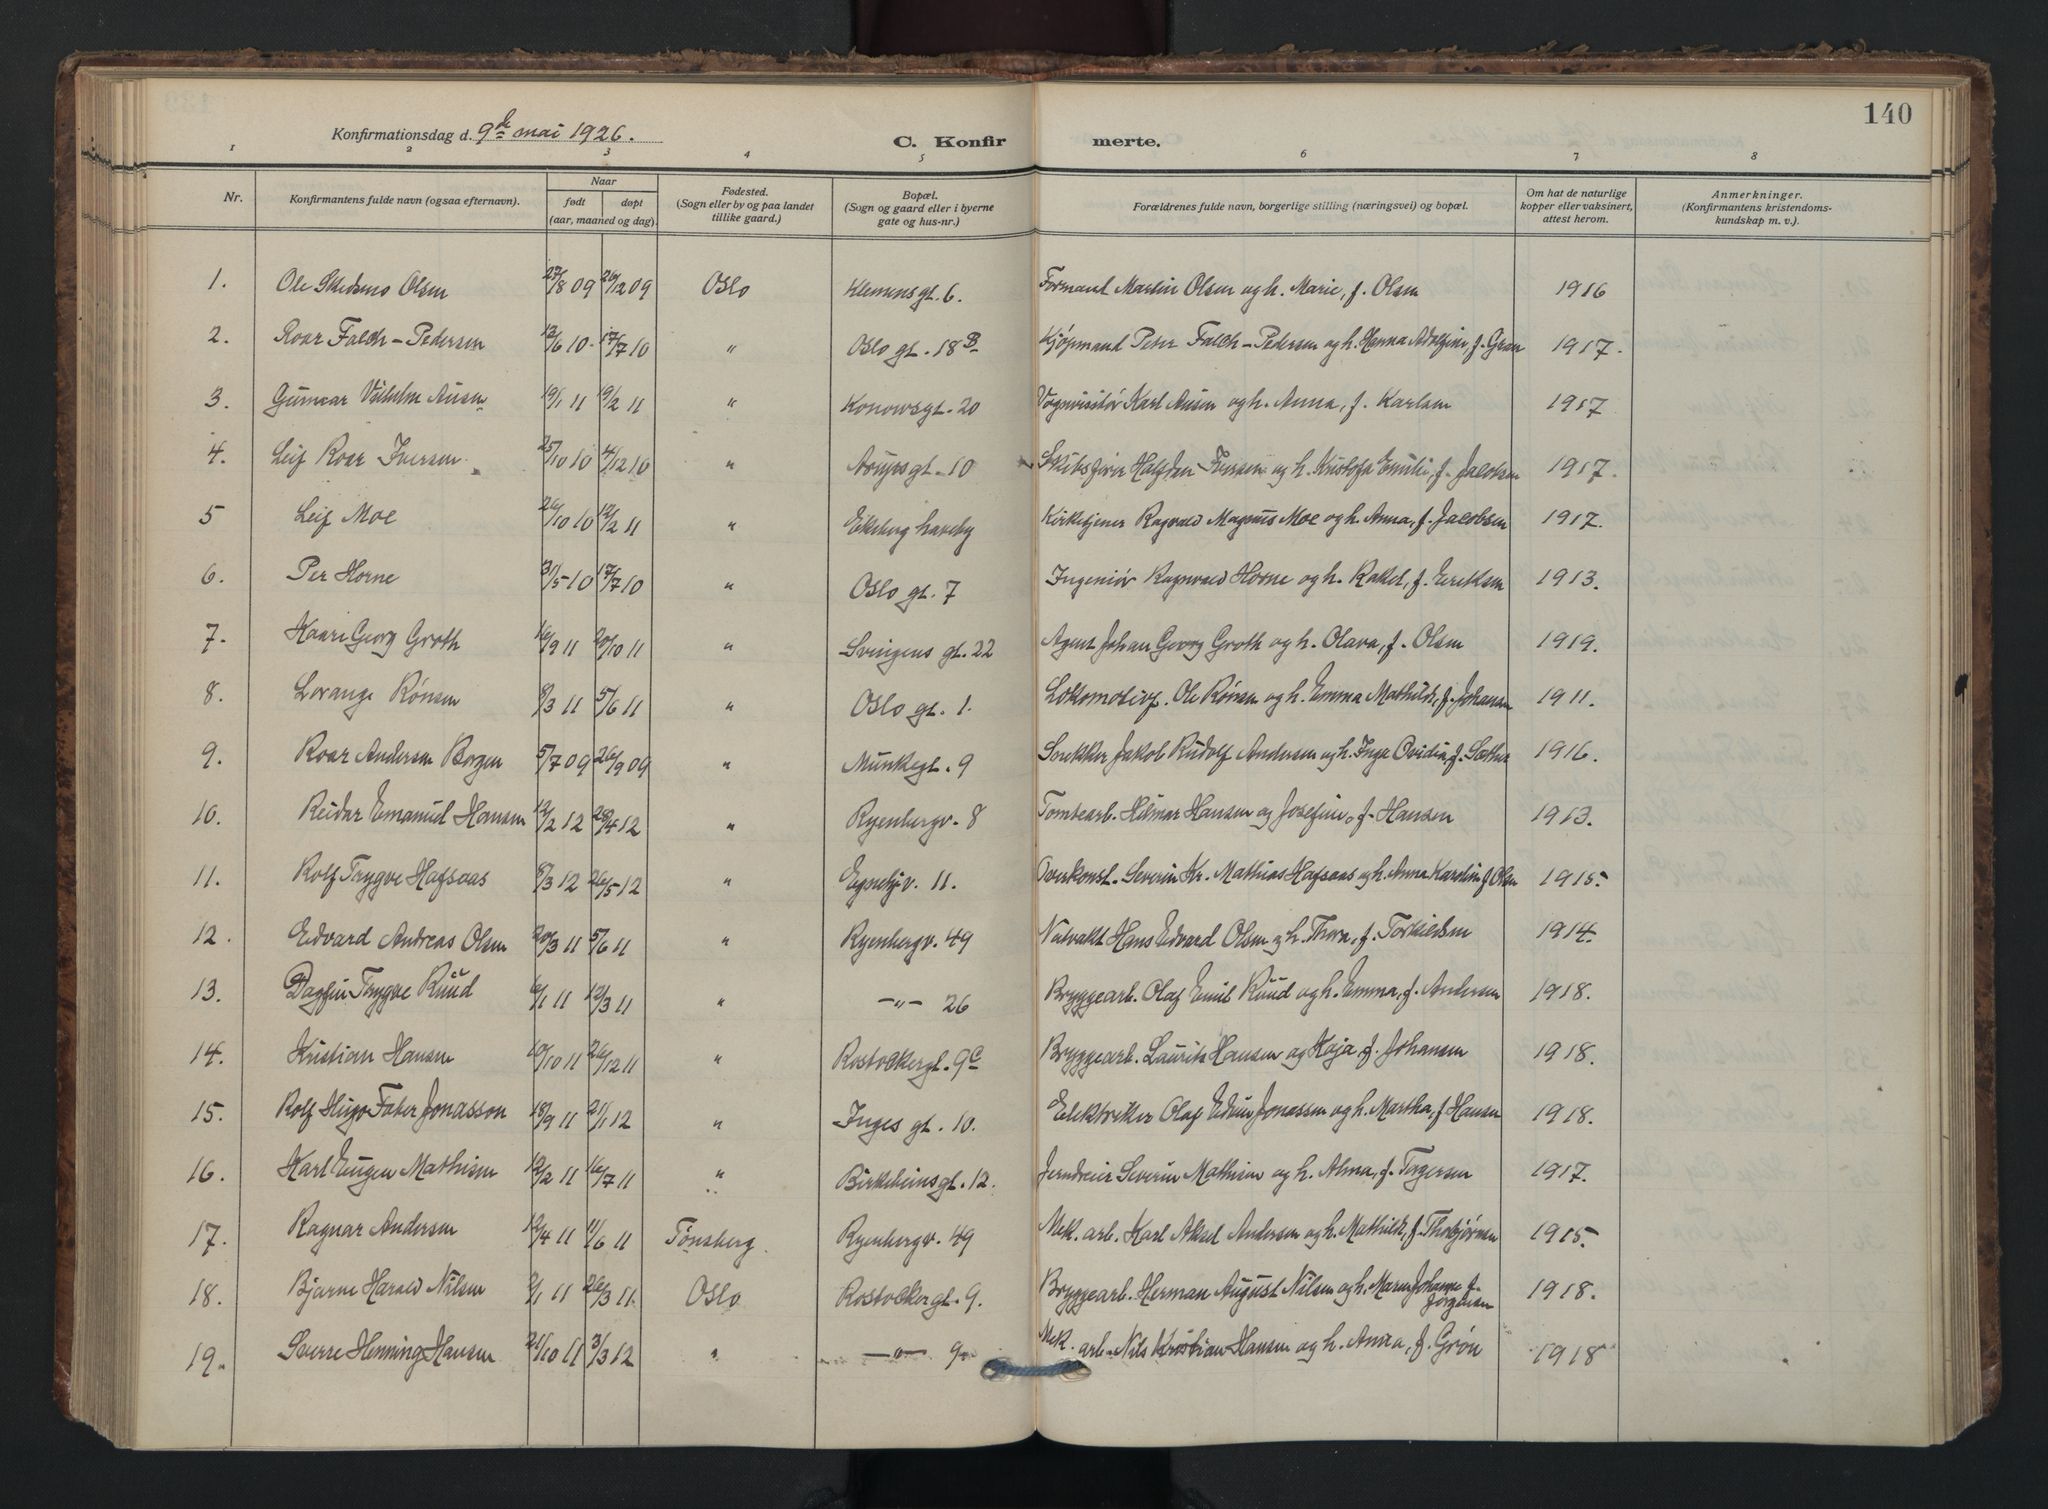 140
Konfirmationsdag d. 9de mai 1926.
C. Konfirmerte.
1 2 3 4 5 6 7 8
Nr. Konfirmantens fulde navn (ogsaa efternavn). Naar født døpt (aar, maaned og dag). Fødested. (Sogn eller by og paa landet tillike gaard.) Bopæl. (Sogn og gaard eller i byerne gate og hus-nr.) Forældrenes fulde navn, borgerlige stilling (næringsvei) og bopæl. Om hat de naturlige kopper eller vaksinert, attest herom. Anmerkninger. (Konfirmantens kristendomskundskap m. v.).
1. Ole Skedsmo Olsen 27/8 09 26/12 09 Oslo Klemensgt. 6. Formand Martin Olsen og h. Marie, f. Olsen 1916
2. Roar Falch-Pedersen 13/6 10 17/7 10 " Oslo gt. 18B Kjøpmand Peter Falch-Pedersen og h. Hanna Adolfine, f. Gran 1917.
3. Gunnar Vilhelm Ausen 19/1 11 19/2 11 " Konowsgt. 20 Vognvisitør Karl Ausen og h. Anna, f. Karlsen 1917
4. Leif Roar Iversen 25/10 10 4/12 10 " Arupsgt. 10 Halfdan Iversen og h. Kristofa Emilie, f. Jacobsen 1917.
5 Leif Moe 26/10 10 12/2 11 " Ekeberg haveby Kirketjener Ragvald Magnus Moe og h. Anna, f. Jacobsen 1917.
6. Per Horne 31/5 10 17/7 10 " Oslo gt. 7 Ingeniør Ragnvald Horne og h. Rakel, f. Eriksen 1913.
7. Kaare Georg Groth 16/9 11 20/10 11 " Svingens gt. 22 Agent Johan Georg Groth og h. Olava, f. Olsen 1919.
8. Lorange Rønsen 8/3 11 5/6 11 " Oslo gt. 1. Lokomotivf. Ole Rønsen og h. Emma Mathilde, f. Johansen 1911.
9. Roar Andersen Borgen 5/7 09 26/9 09 " Munkegt. 9 Snekker Jakob Rudolf Andersen og h. Inga Ovidia, f. Sæther 1916.
10. Reidar Emanuel Hansen 12/2 12 28/4 12 " Ryenbergv. 8 Tomtearb. Hilmar Hansen og Josefine, f. Hansen 1913.
11. Rolf Trygve Hafsaas 8/3 12 26/5 12 " Egnehjv. 11. Overkonst. Severin Kr. Mathias Hafsaas og h. Anna Karoline f. Olsen 1915.
12. Edvard Andreas Olsen 20/3 11 5/6 11 " Ryenbergv. 49 Natvakt Hans Edvard Olsen og h. Thora, f. Torkildsen 1914.
13. Dagfin Trygve Ruud 6/1 11 12/3 11 " —"— 26 Bryggearb. Olaf Emil Ruud og h. Emma, f. Andersen 1918.
14. Kristian Hansen 10/10 11 26/12 11 " Rostockergt. 9c Bryggearb. Laurits Hansen og Kaja, f. Johansen 1918.
15. Rolf Hugo Faber Jonasson 18/9 11 21/1 12 " Inges gt. 10. Elektriker Olaf Edvin Jonassen og h. Martha, f. Hansen 1918.
16. Karl Eugen Mathisen 12/2 11 16/7 11 " Birkebeinsgt. 12. Jerndreier Severin Mathisen og h. Alma, f. Torgersen 1917.
17. Ragnar Andersen 12/4 11 11/6 11 Tønsberg. Ryenbergv. 49 Mek. arb. Karl Aksel Andersen og h. Mathilde, f. Thobjørnsen 1915.
18. Bjarne Harald Nilsen 2/1 11 26/3 11 Oslo Rostockergt. 9. Bryggearb. Herman August Nilsen og h. Maren Johanne f. Jørgensen 1918.
19. Sverre Henning Hansen 21/10 11 3/3 12 " —"— 9 Mek. arb. Nils Kristian Hansen og h. Anna, f. Grøn 1918